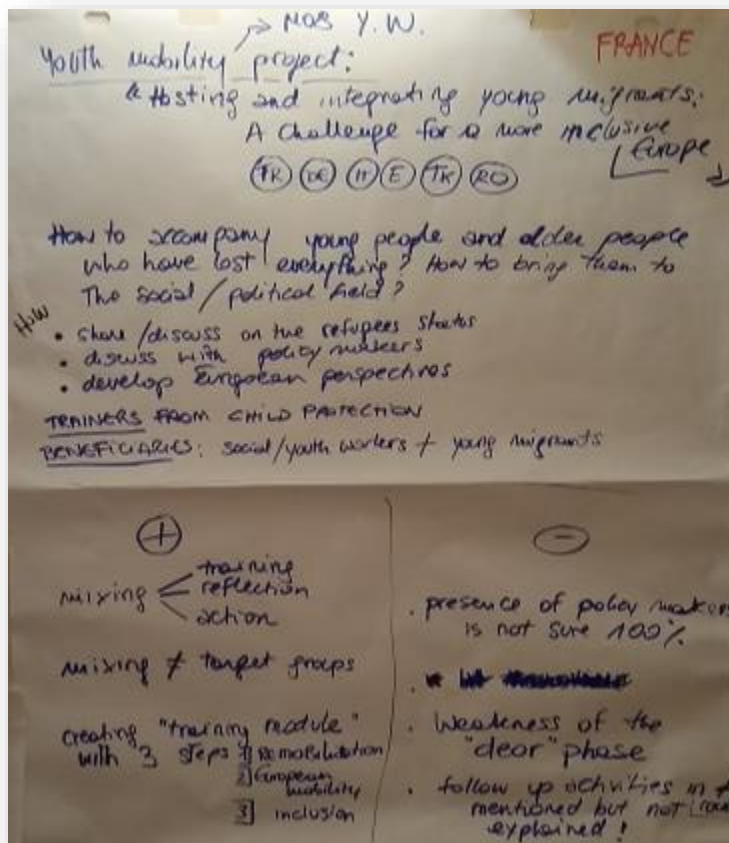 → MOB Y.W.
FRANCE
Youth mobility project:
"Hosting and integrating young migrants:
A challenge for a more inclusive
Europe
DE IT E TK RO
How to accompany young people and older people
who have lost everything? How to bring them to
the social/political field?
How
• share/discuss on the refugees status
• discuss with policy makers
• develop European perspectives
TRAINERS FROM CHILD PROTECTION
BENEFICIARIES: social/youth workers + young migrants
+
mixing training
reflection
action
mixing ≠ target groups
creating "training module"
with 3 steps 1] Remobilisation
2] European
mobility
3] inclusion
-
. presence of policy makers
is not sure 100%
. Weakness of the
phase
. follow up activities in
mentioned but not
explained!